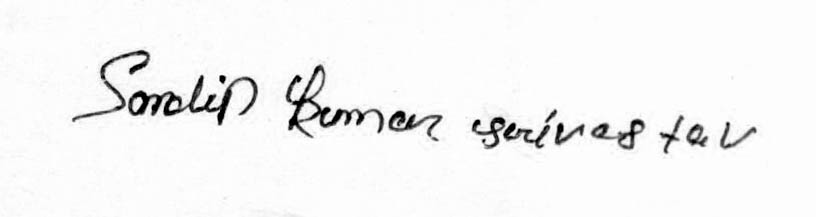 Sandip Kumar srivastav